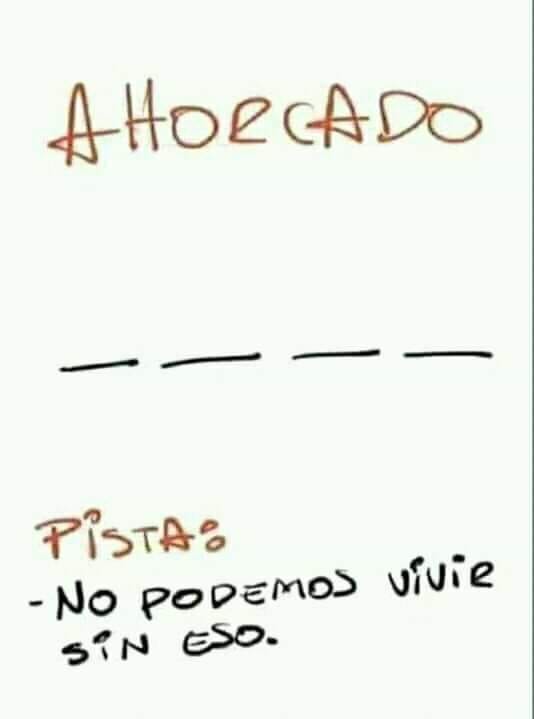 AHORCADO
_ _ _ _
PiSTA:
- NO PODEMOS ViViR
SiN ESO.